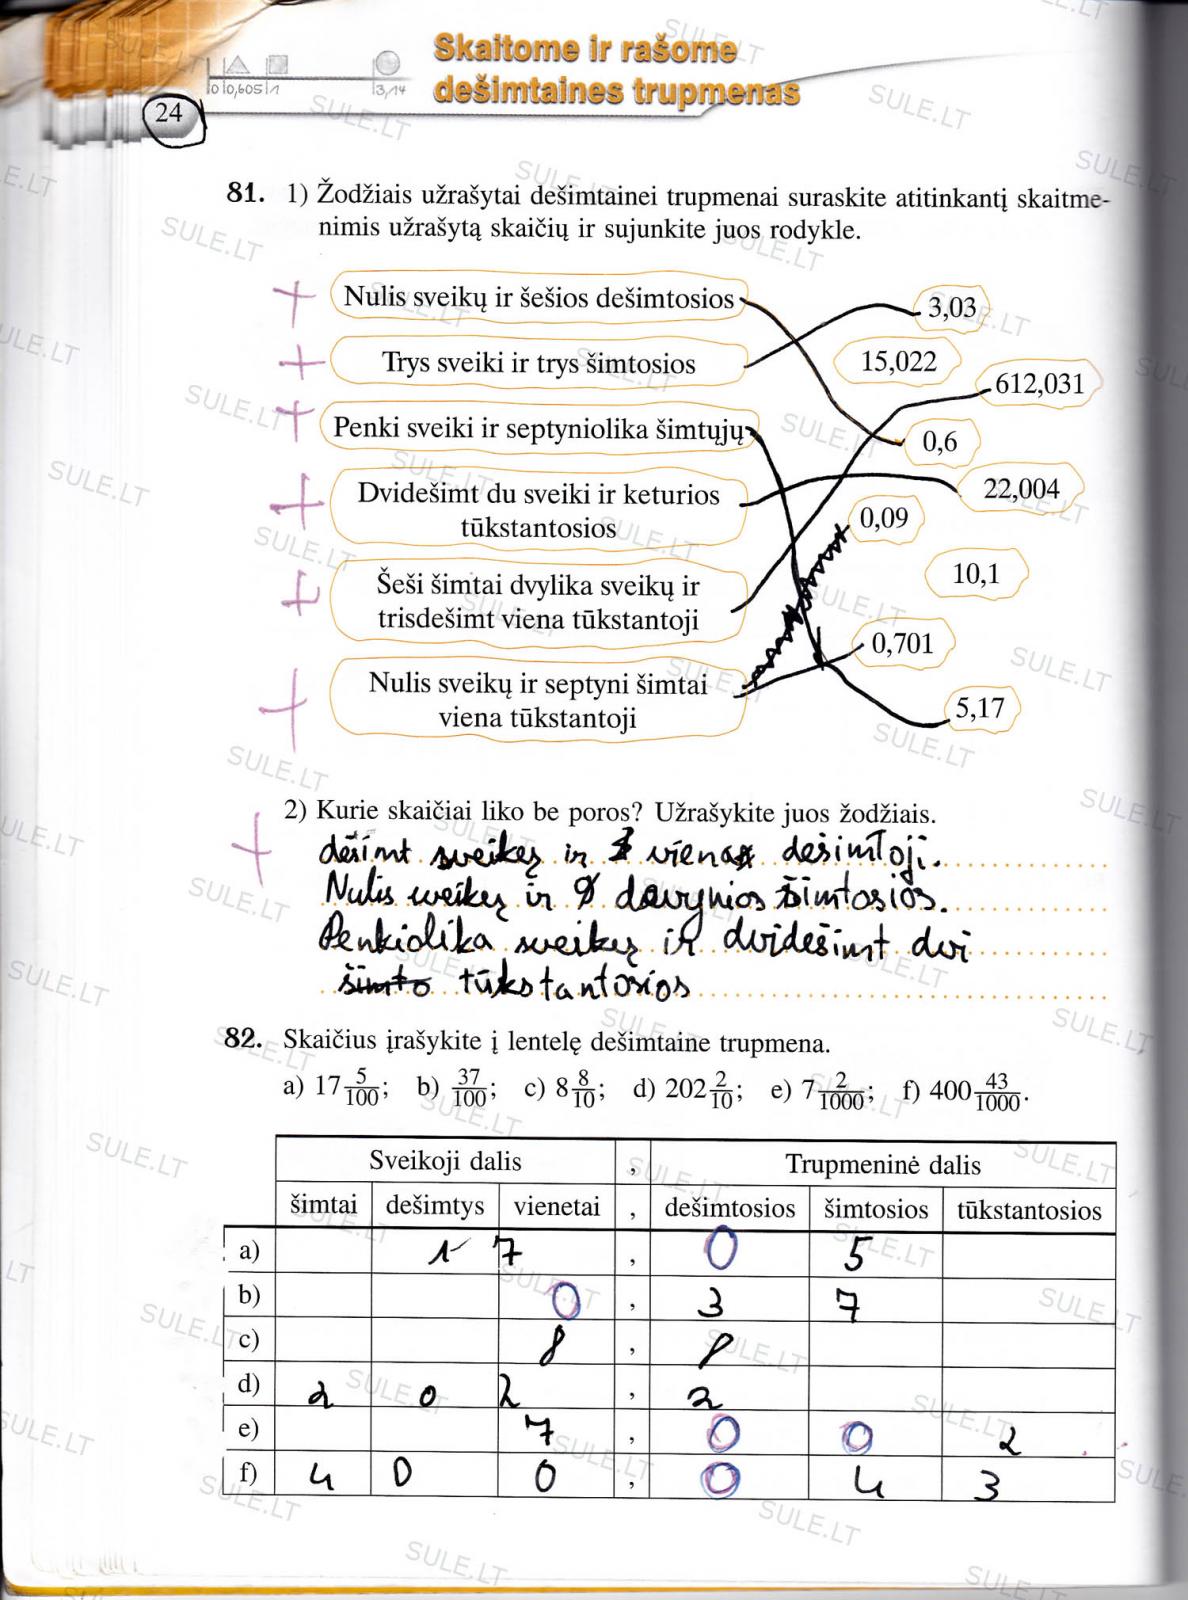 Skaitome ir rašome
dešimtaines trupmenas
0 0,605 1 3,14
24
81. 1) Žodžiais užrašytai dešimtainei trupmenai suraskite atitinkantį skaitme-
nimis užrašytą skaičių ir sujunkite juos rodykle.
Nulis sveikų ir šešios dešimtosios
3,03
Trys sveiki ir trys šimtosios
15,022
612,031
Penki sveiki ir septyniolika šimtųjų
0,6
Dvidešimt du sveiki ir keturios
tūkstantosios
22,004
0,09
Šeši šimtai dvylika sveikų ir
trisdešimt viena tūkstantoji
10,1
0,701
Nulis sveikų ir septyni šimtai
viena tūkstantoji
5,17
2) Kurie skaičiai liko be poros? Užrašykite juos žodžiais.
dešimt sveikų ir viena dešimtoji.
Nulis sveikų ir devynios šimtosios.
Penkiolika sveikų ir dvidešimt dvi
šimto tūkstantosios
82. Skaičius įrašykite į lentelę dešimtaine trupmena.
a) 17 5/100; b) 37/100; c) 8 8/10; d) 202 2/10; e) 7 2/1000; f) 400 43/1000.
Sveikoji dalis , Trupmeninė dalis
šimtai dešimtys vienetai , dešimtosios šimtosios tūkstantosios
a) 1 7 , 0 5
b) 0 , 3 7
c) 8 , 8
d) 2 0 2 , 2
e) 7 , 0 0 2
f) 4 0 0 , 0 4 3
SULE.LT